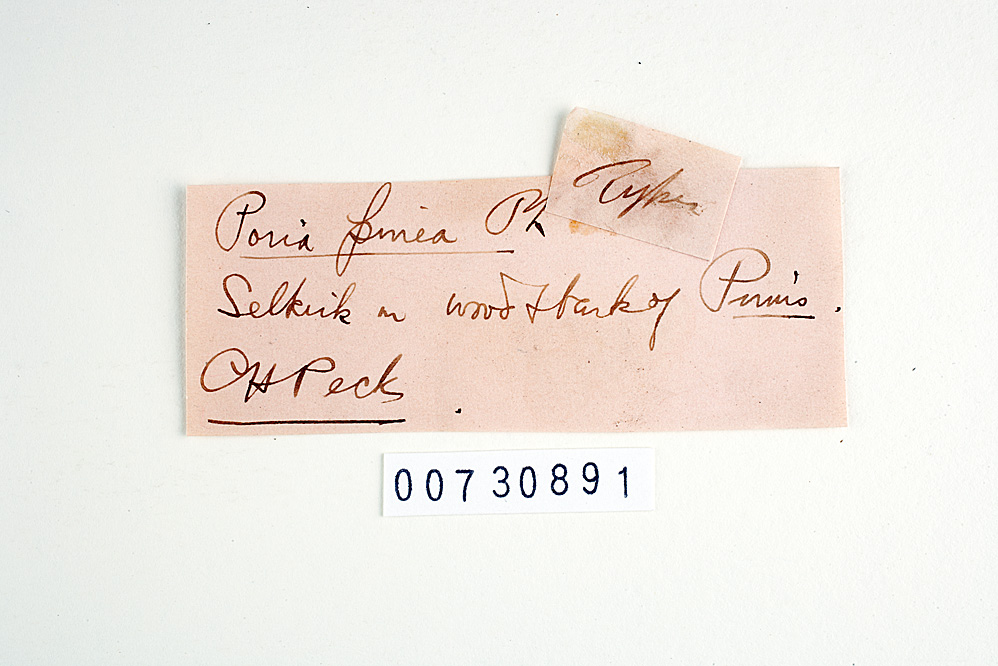 Poria pinea Pk
Type
Selkirk on wood & bark of Pinus.
CH Peck
00730891